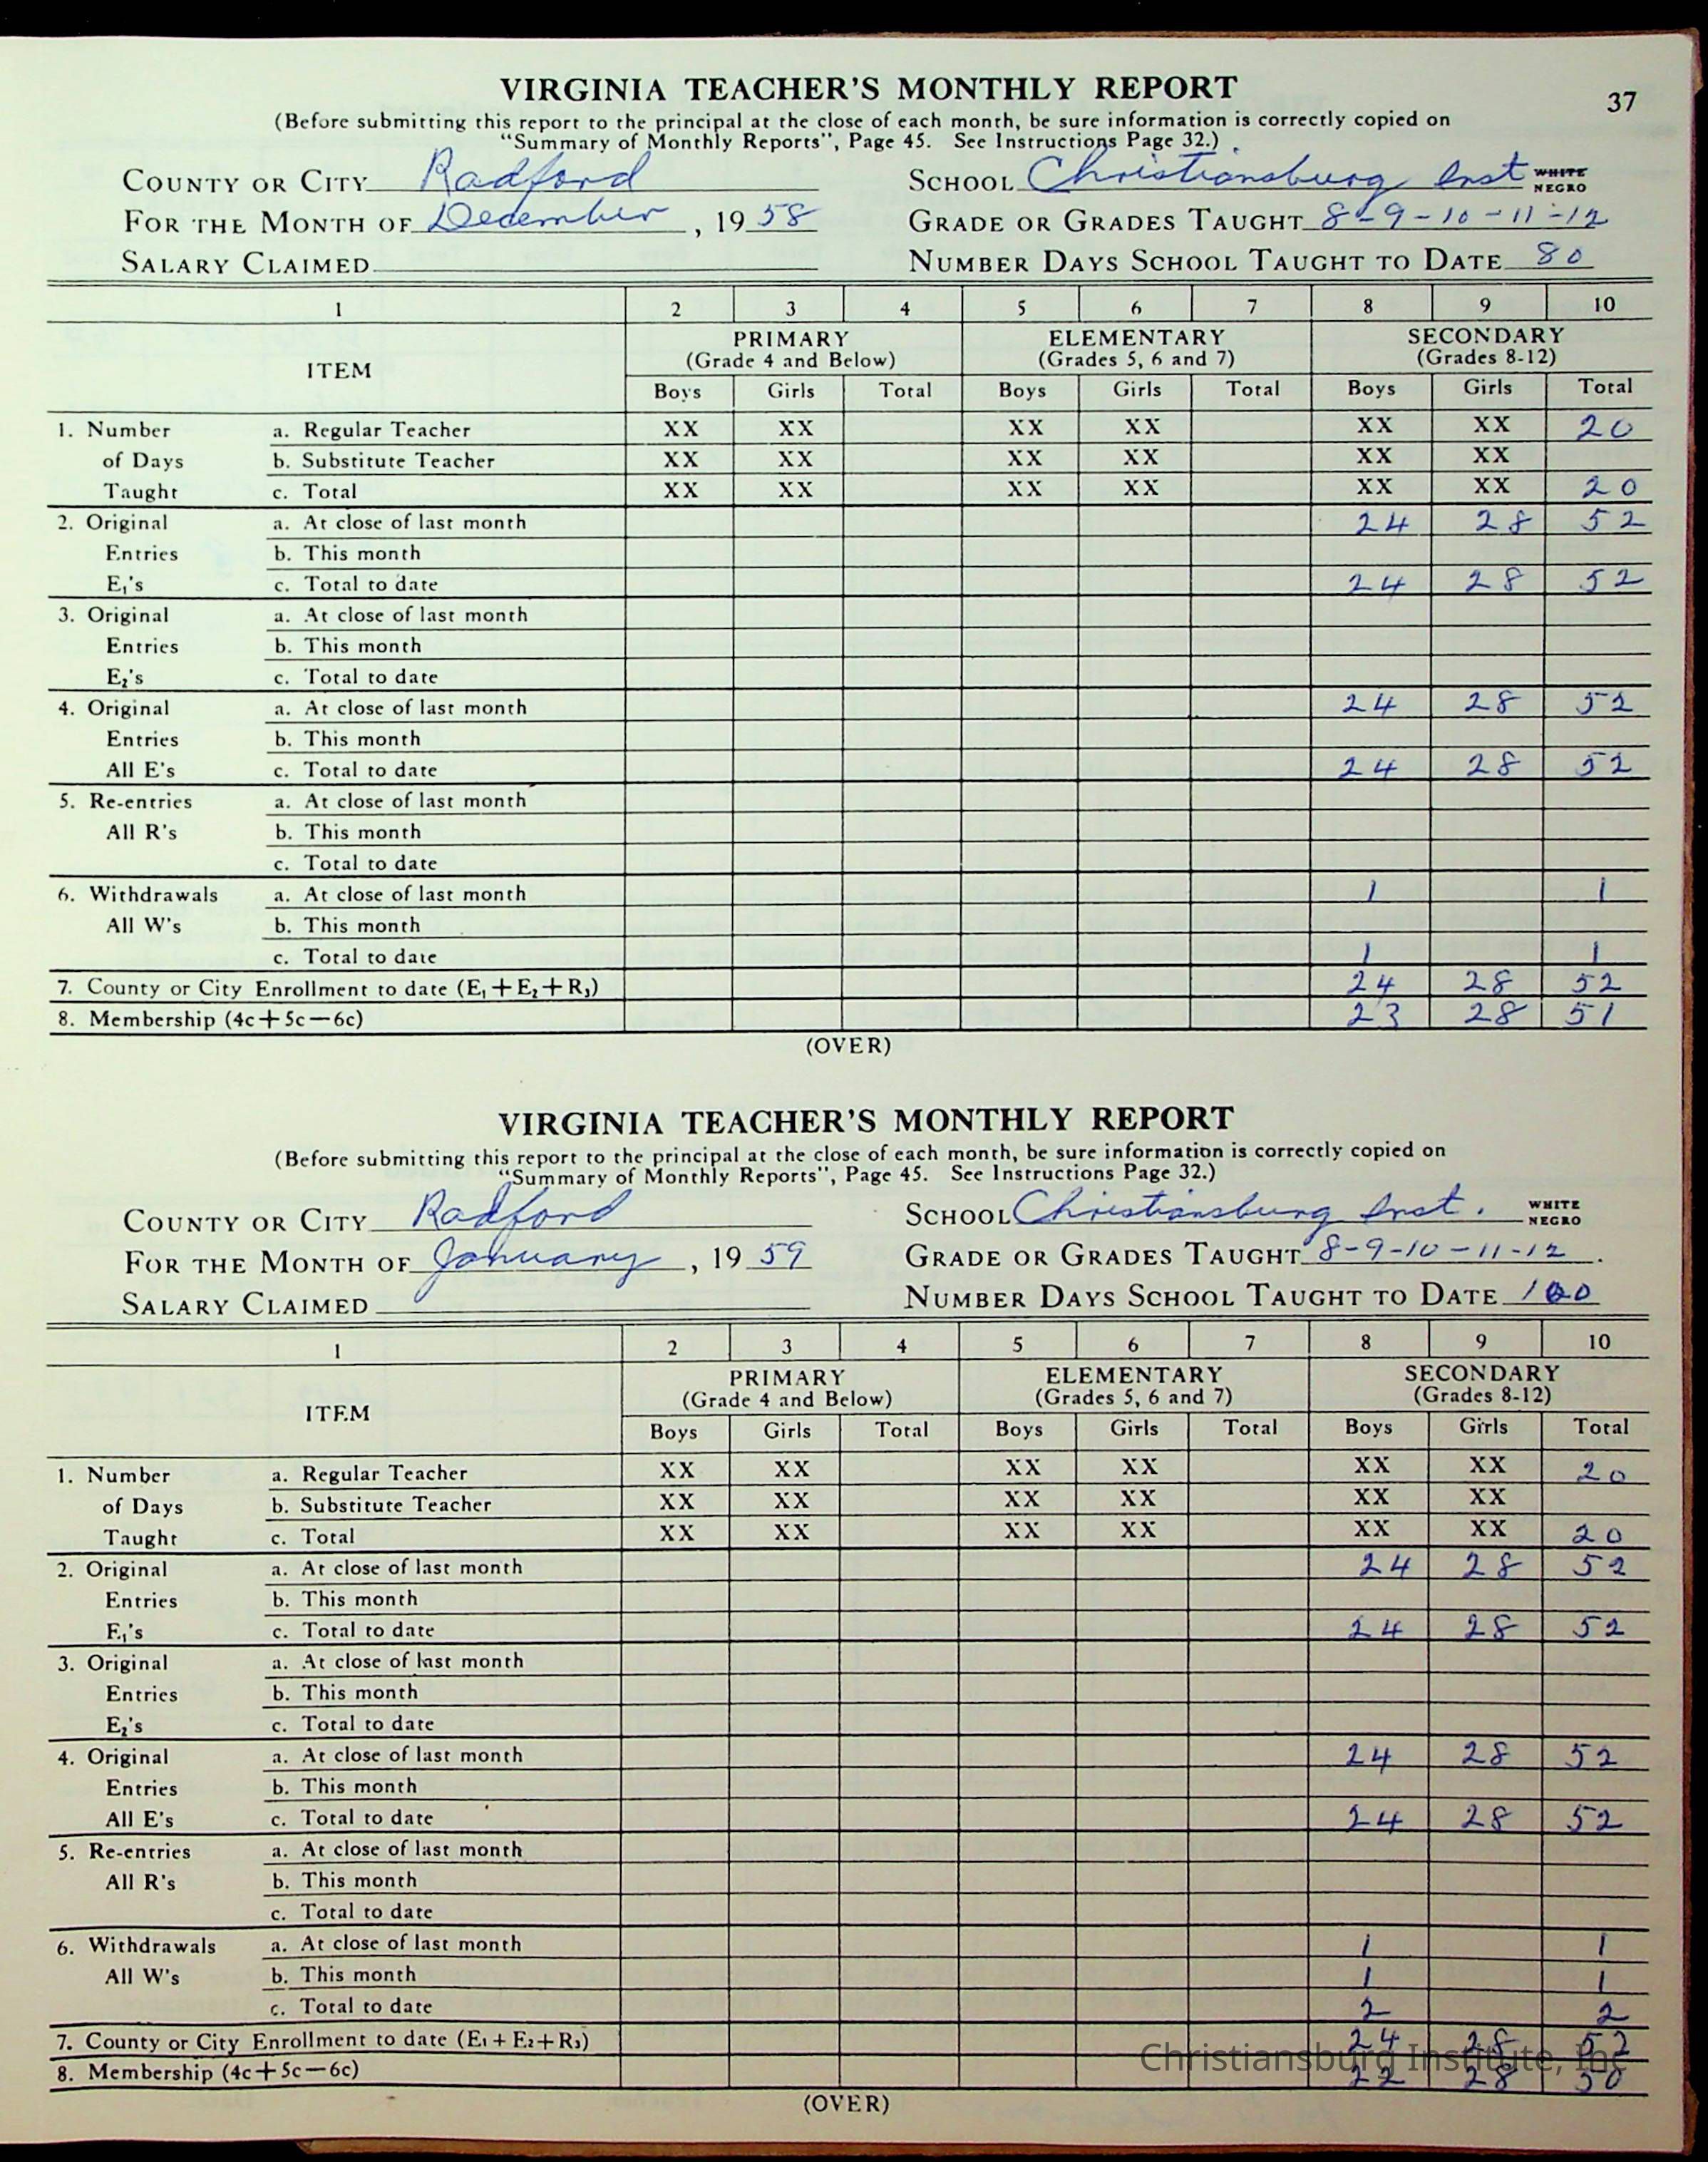 37
VIRGINIA TEACHER'S MONTHLY REPORT
(Before submitting this report to the principal at the close of each month, be sure information is correctly copied on
"Summary of Monthly Reports", Page 45. See Instructions Page 32.)
COUNTY OR CITY Radford SCHOOL Christiansburg Inst WHITE NEGRO
FOR THE MONTH OF December, 19 58 GRADE OR GRADES TAUGHT 8-9-10-11-12
SALARY CLAIMED NUMBER DAYS SCHOOL TAUGHT TO DATE 80
1 2 3 4 5 6 7 8 9 10
ITEM PRIMARY ELEMENTARY SECONDARY
(Grade 4 and Below) (Grades 5, 6 and 7) (Grades 8-12)
Boys Girls Total Boys Girls Total Boys Girls Total
1. Number a. Regular Teacher XX XX XX XX XX XX 20
of Days b. Substitute Teacher XX XX XX XX XX XX
Taught c. Total XX XX XX XX XX XX 20
2. Original a. At close of last month 24 28 52
Entries b. This month
E₁'s c. Total to date 24 28 52
3. Original a. At close of last month
Entries b. This month
E₂'s c. Total to date
4. Original a. At close of last month 24 28 52
Entries b. This month
All E's c. Total to date 24 28 52
5. Re-entries a. At close of last month
All R's b. This month
c. Total to date
6. Withdrawals a. At close of last month 1 1
All W's b. This month
c. Total to date 1 1
7. County or City Enrollment to date (E₁+E₂+R₃) 24 28 52
8. Membership (4c+5c—6c) 23 28 51
(OVER)
VIRGINIA TEACHER'S MONTHLY REPORT
(Before submitting this report to the principal at the close of each month, be sure information is correctly copied on
"Summary of Monthly Reports", Page 45. See Instructions Page 32.)
COUNTY OR CITY Radford SCHOOL Christiansburg Inst. WHITE NEGRO
FOR THE MONTH OF January, 19 59 GRADE OR GRADES TAUGHT 8-9-10-11-12.
SALARY CLAIMED NUMBER DAYS SCHOOL TAUGHT TO DATE 100
1 2 3 4 5 6 7 8 9 10
ITEM PRIMARY ELEMENTARY SECONDARY
(Grade 4 and Below) (Grades 5, 6 and 7) (Grades 8-12)
Boys Girls Total Boys Girls Total Boys Girls Total
1. Number a. Regular Teacher XX XX XX XX XX XX 20
of Days b. Substitute Teacher XX XX XX XX XX XX
Taught c. Total XX XX XX XX XX XX 20
2. Original a. At close of last month 24 28 52
Entries b. This month
E₁'s c. Total to date 24 28 52
3. Original a. At close of last month
Entries b. This month
E₂'s c. Total to date
4. Original a. At close of last month 24 28 52
Entries b. This month
All E's c. Total to date 24 28 52
5. Re-entries a. At close of last month
All R's b. This month
c. Total to date
6. Withdrawals a. At close of last month 1 1
All W's b. This month 1 1
c. Total to date 2 2
7. County or City Enrollment to date (E₁+E₂+R₃) 24 28 52
Christiansburg Institute, Inc
8. Membership (4c+5c—6c) 22 28 50
(OVER)